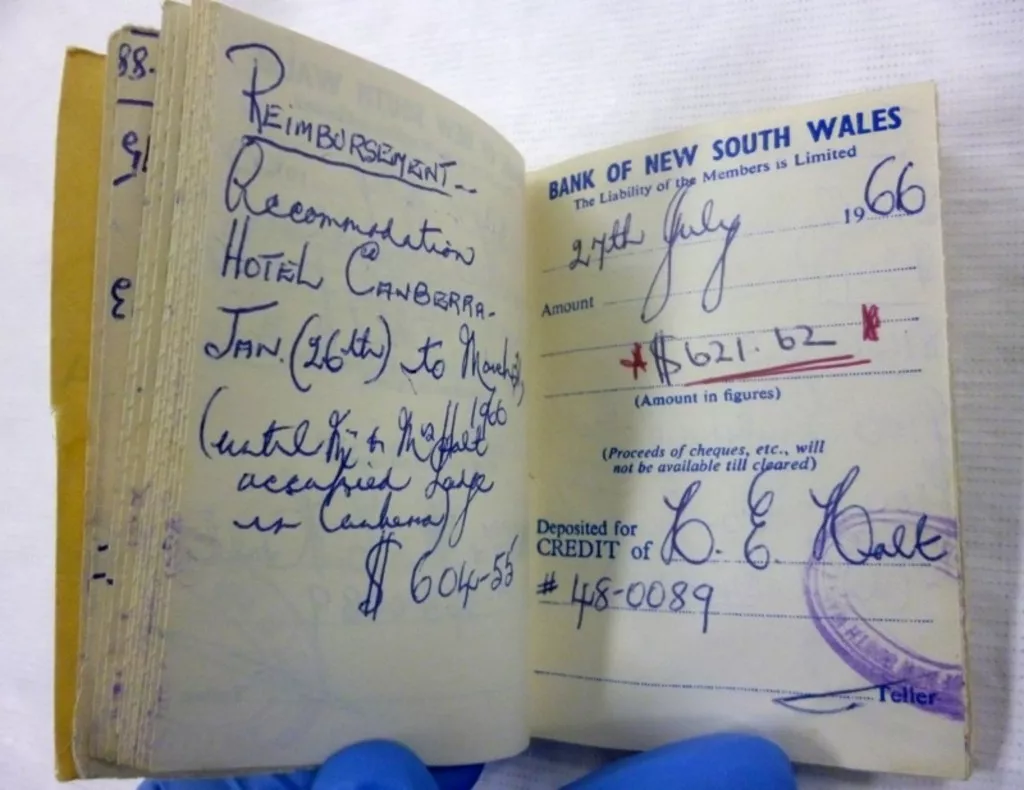 88.
REIMBURSEMENT-
Accommodation
HOTEL CANBERRA-
JAN. (26th) to March,
1966
(until Mr & Mrs Holt
occupied Lodge
in Canberra)
$ 604-55
BANK OF NEW SOUTH WALES
The Liability of the Members is Limited
27th July 1966
Amount
$621.62
(Amount in figures)
(Proceeds of cheques, etc., will
not be available till cleared)
Deposited for
CREDIT of H. E. Holt
# 48-0089
Teller